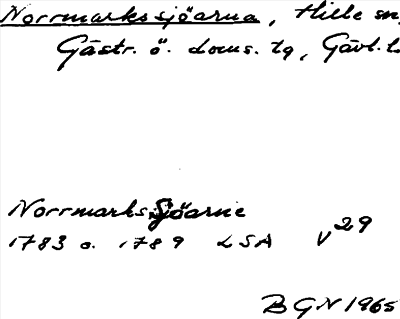 Norrmarkssjöarna, Hille sn,
Gästr. ö. doms. tg, Gävl. l.
Norrmarks Sjöarne
1783 o. 1789 LSA V29
BGN 1965